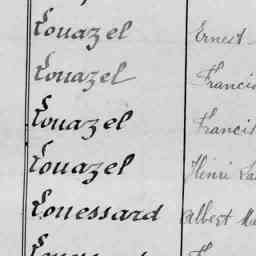 Louazel Ernest
Louazel Francis
Louazel Francis
Louazel Henri
Louessard Albert